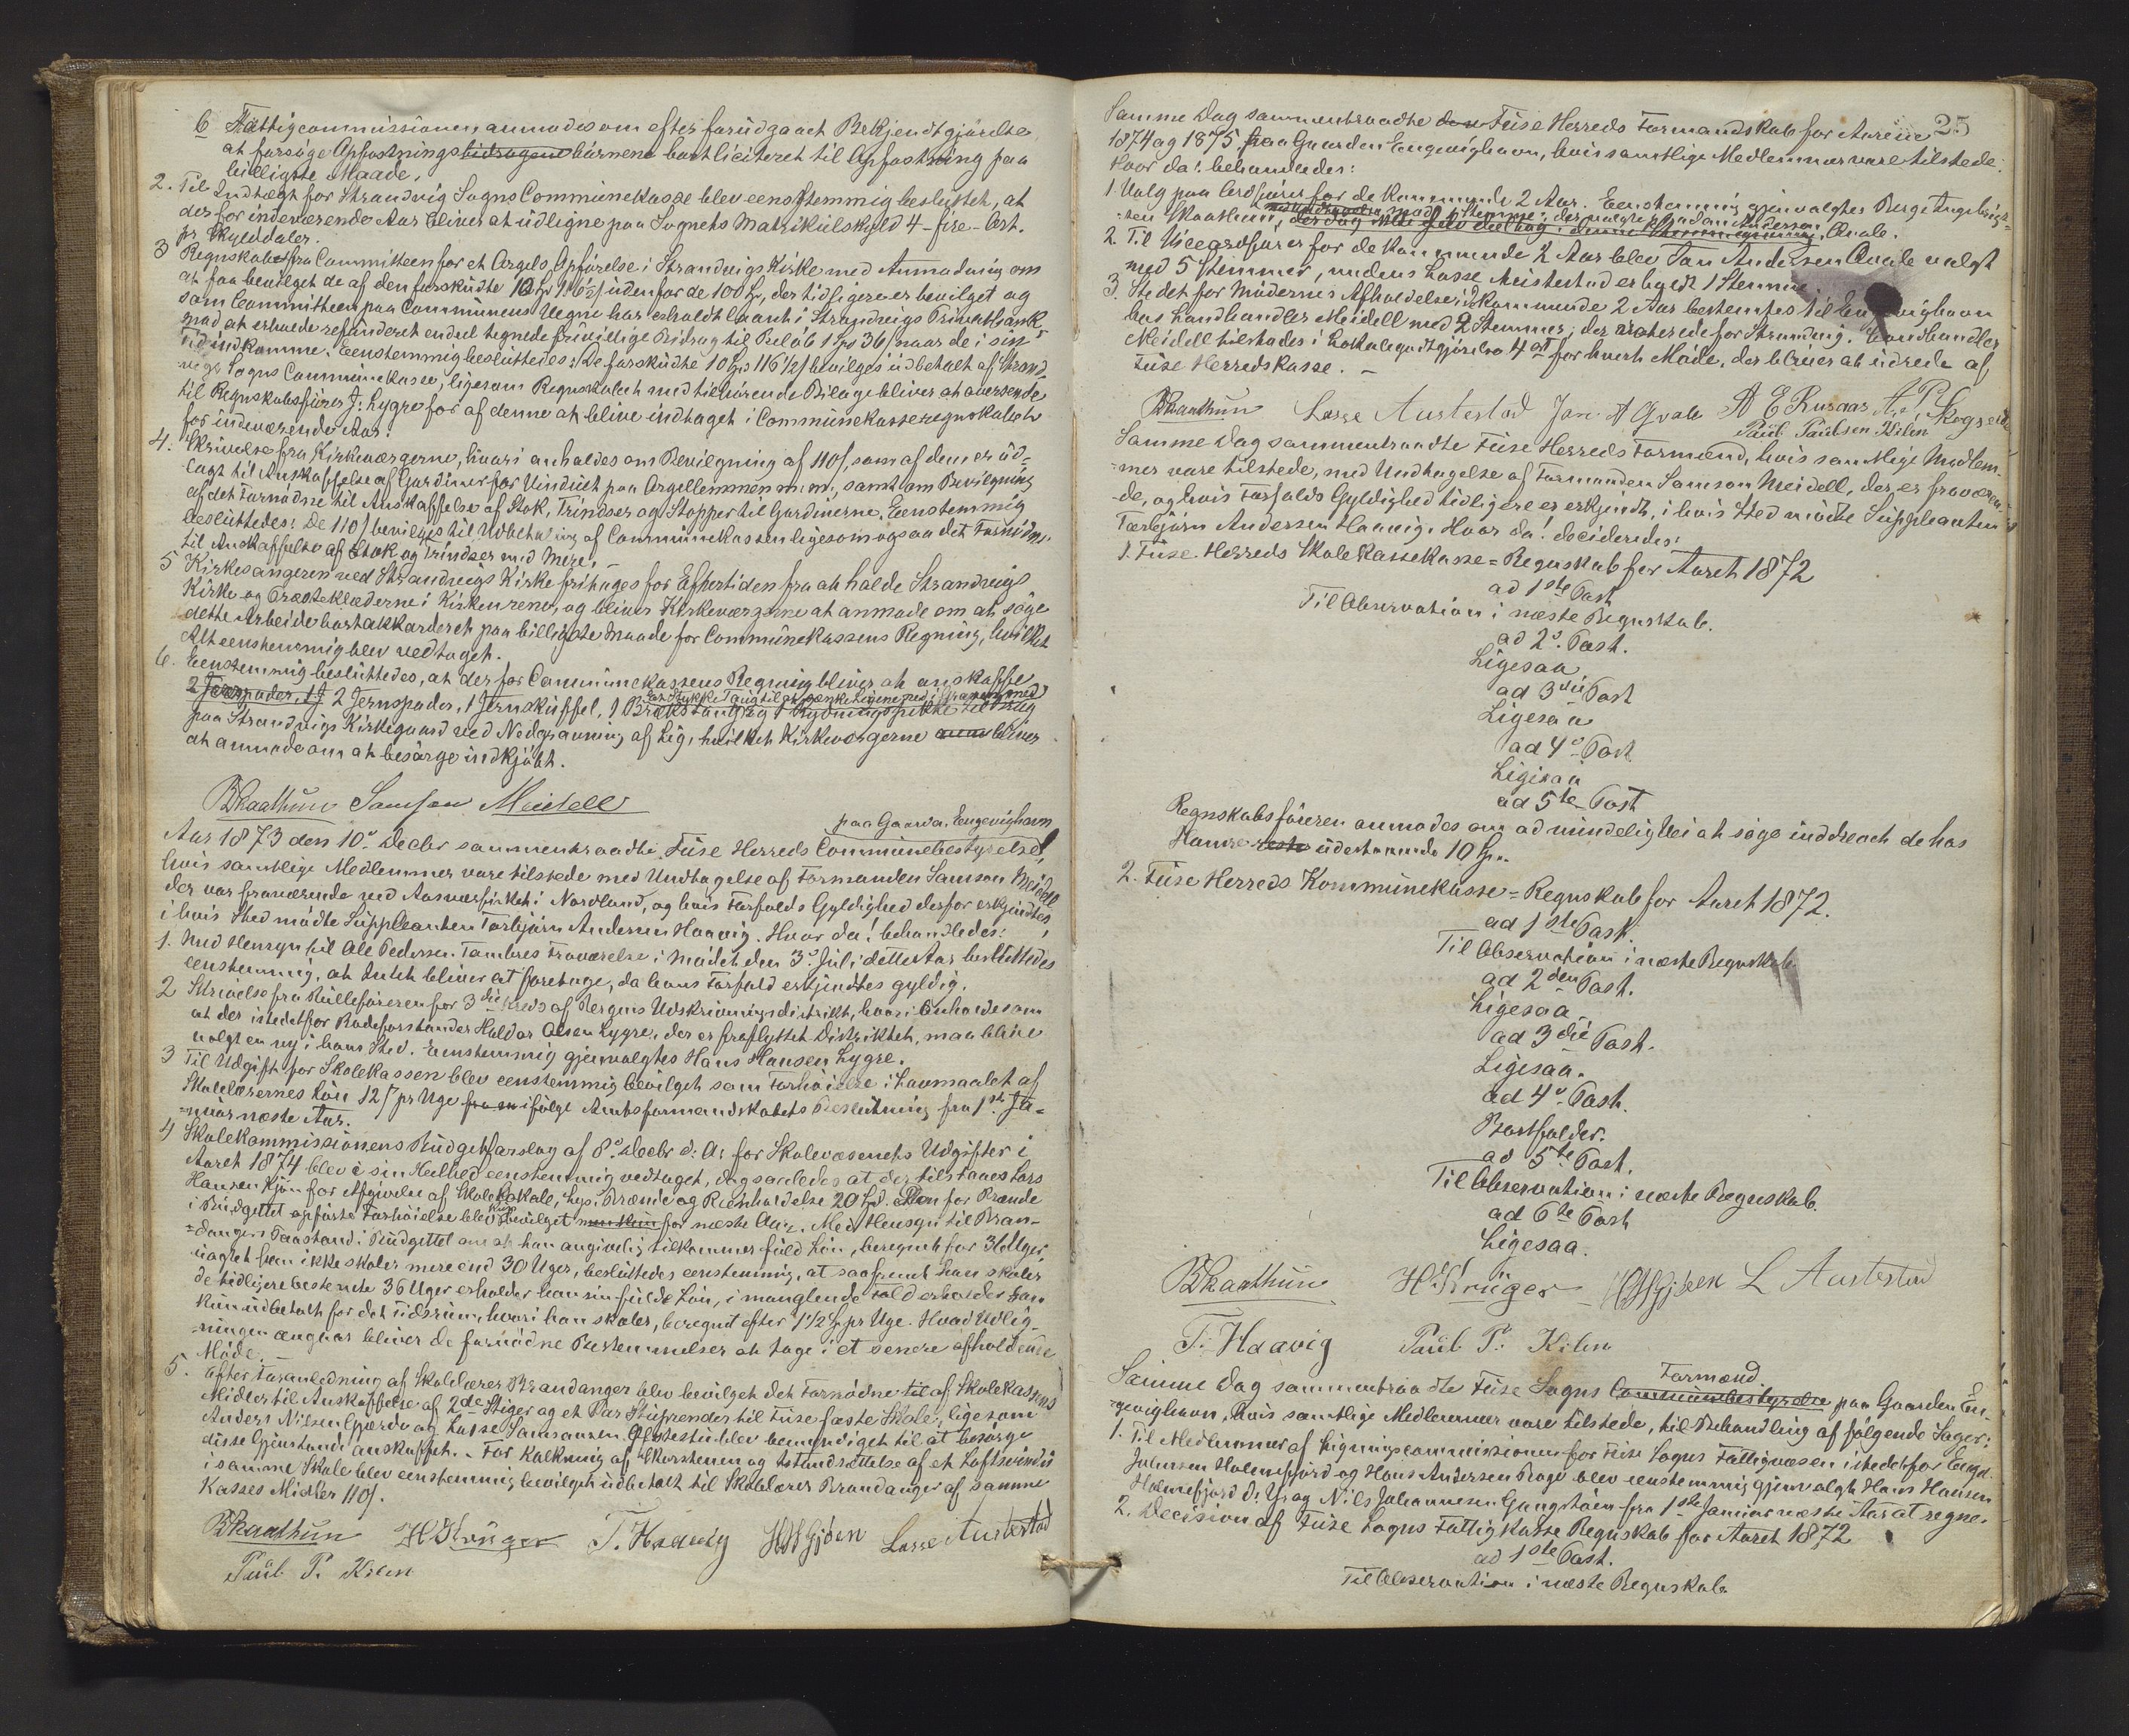 6 Fattigcommissionen anmodes om efter forudgaaet Bekjendtgjørelse
at forsøge Opfostringsbidragene børnene bortliciteret til Opfostring paa
billigste Maade.
2. Til Indtægt for Strandvig Sogns Communekasse blev eenstemmig besluttet, at
der for indeværende Aar bliver at udligne paa Sognets Matrikulskyld 4 - fire - Ort.
pr Skylddaler.
3 Regnskabet fra Committeen for et Orgels Opførelse i Strandvigs Kirke med Anmodning om
at faa bevilget de af dem forskudte 10 Spd 116½ ß udenfor de 100 Spd, der tidligere er bevilget og
som Committeen paa Communens Vegne har erholdt laant i Strandvigs Privatbank
mod at erholde refunderet endel tegnede frivillige Bidrag til Beløb 1 Spd 36 ß naar de i sin
Tid indkomme. Eenstemmig besluttedes: De forskudte 10 Spd 116½ ß bevilges udbetalt af Strand-
vigs Sogns Communekasse, ligesom Regnskabet med tilhørende Bilage bliver at oversende
til Regnskabsfører J. Lygre for af denne at blive indtaget i Communekasseregnskabet
for indeværende Aar.
4. Skrivelse fra Kirkeværgerne, hvori anholdes om Bevilgning af 110 ß, som af dem er ud-
lagt til Anskaffelse af Gardiner for Vinduet paa Orgellemmen m.m., samt om Bevilgning
af det Fornødne til Anskaffelse af Stok, Trindser og Stopper til Gardinerne. Eenstemmig
besluttedes: De 110 ß bevilges til Udbetaling af Communekassen ligesom ogsaa det Fornødne
til Anskaffelse af Stok og Trindser med Mere.
5 Kirkesangeren ved Strandvigs Kirke fritages for Eftertiden fra at holde Strandvigs
Kirke og Præsteklæderne i Kirken rene, og bliver Kirkeværgerne at anmode om at søge
dette Arbeide bortakkorderet paa billigste Maade for Communekassens Regning, hvilket
Alt eenstemmig blev vedtaget.
6. Eenstemmig besluttedes, at der for Communekassens Regning bliver at anskaffe
2 Jernspader, 1 J 2 Jernspader, 1 Jernskuffel, 1 Brækstang og 1 Rydningshakke til Brug
et Stykke Taug til at sænke Ligene ned i Graven med
paa Strandvigs Kirkegaard ved Nedgravning af Lig, hvilket Kirkeværgerne bliver
at anmode om at besørge indkjøbt.
BSkaathun Samson Meidell
paa Gaarden Engevighavn
Aar 1873 den 10de Decbr sammentraadte Fuse Herreds Communebestyrelse,
hvis samtlige Medlemmer vare tilstede med Undtagelse af Formanden Samson Meidell,
der var fraværende ved Aarsverfisket i Nordland, og hvis Forfalds Gyldighed derfor erkjendtes,
i hvis Sted mødte Suppleanten Torbjørn Andersen Haavig. Hvor da! behandledes:
1. Med Hensyn til Ole Pedersen Tombres Fraværelse i Mødet den 3die Juli dette Aar besluttedes
eenstemmig, at Intet bliver at foretage, da hans Forfald erkjendtes gyldig.
2 Skrivelse fra Rulleføreren for 3die Kreds af Bergens Udskrivningsdistrikt, hvori Anholdes om
at der istedetfor Rodeforstander Haldor Olsen Lygre, der er fraflyttet Distriktet, maa blive
valgt en ny i hans Sted. Eenstemmig gjenvalgtes Hans Hansen Lygre.
3 Til Udgift for Skolekassen blev eenstemmig bevilget som Forhøielse i Lønmaalet af
Skolelærernes Løn 12 ß pr Uge fra en ifølge Amtsformandskabets Beslutning fra 1ste Ja-
nuar næste Aar.
4 Skolekommissionens Budgetforslag af 8de Decbr d. A. for Skolevæsenets Udgifter i
Aaret 1874 blev i sin Helhed eenstemmig vedtaget, dog saaledes at der tilstaaes Lars
Hansen Kjøn for Afgivelse af Skole Lokale, Lys, Brænde og Reenholdelse 20 Spd. Den for Brænde
i Budgettet opførte Forhøielse blev kun bevilget for næste Aar. Med Hensyn til Bran-
dangers Paastand i Budgettet om at han angivelig tilkommer fuld Løn, beregnet for 36 Uger,
uagtet han ikke skoler mere end 30 Uger, besluttedes eenstemmig, at saafremt han skoler
de tidligere bestemte 36 Uger erholder han sin fulde Løn, i manglende Fald erholder han
kun udbetalt for det Tidsrum, hvori han skoler, beregnet efter 1½ Spd pr Uge. Hvad Udlig-
ningen angaar bliver de fornødne Bestemmelser at tage i et senere afholdende
Møde.
5. Efter Foranledning af Skolelærer Brandanger blev bevilget det Fornødne til af Skolekassens
Midler til Anskaffelse af 2de Stiger og et Par Stuprender til Fuse faste Skole, ligesom
Anders Nilsen Gjærde og Lasse Samsonsen blev bemyndiget til at besørge
disse Gjenstande anskaffet. For Kalkning af Skorstenen og Istandsættelse af et Loftsvindu
i samme Skole blev eenstemmig bevilget udbetalt til Skolelærer Brandanger af samme
Kasses Midler 110 ß.
BSkaathun HSKrüger T. Haavig HHGjøen Lasse Austestad
Paul P. Kilen
25
Samme Dag sammentraadte den Fuse Herreds Formandskab for Aarene
1874 og 1875 paa Gaarden Engevighavn, hvis samtlige Medlemmer vare tilstede.
Hvor da! behandledes:
1. Valg paa Ordfører for de kommende 2 Aar. Eenstemmig gjenvalgtes Berge Engebrigt-
sen Skaathun,
Qvale.
2. Til Viceordfører for de kommende 2 Aar blev Jan Andersen Qvale valgt
med 5 Stemmer, medens Lasse Austestad erholdt 1 Stemme.
3. Stedet for Mødernes Afholdelse i de kommende 2 Aar bestemtes til Engevighavn
hos Landhandler Meidell med 2 Stemmer, der voterede for Strandvig. Landhandler
Meidell tilstodes i Lokalegodtgjørelse 4 Ort for hvert Møde, der bliver at udrede af
Fuse Herredskasse. -
BSkaathun Lasse Austestad Jan A Qvale A E Rusaas A. P. Skogseide
Paul Paulsen Kilen
Samme Dag sammentraadte Fuse Herreds Formænd, hvis samtlige Medlem-
mer vare tilstede, med Undtagelse af Formanden Samson Meidell, der er fraværen-
de, og hvis Forfalds Gyldighed tidligere er erkjendt, i hvis Sted mødte Suppleanten
Torbjørn Andersen Haavig. Hvor da! decideredes:
1. Fuse Herreds Skolekassekasse-Regnskab for Aaret 1872
ad 1ste Post
Til Observation i næste Regnskab.
ad 2den Post.
Ligesaa
ad 3die Post
Ligesaa
ad 4de Post
Ligesaa
ad 5te Post
Regnskabsføreren anmodes om ad mindelig Vei at søge inddrevet de hos
Hauge reste udestaaende 10 Spd.
2. Fuse Herreds Kommunekasse-Regnskab for Aaret 1872.
ad 1ste Post.
Til Observation i næste Regnskab.
ad 2den Post.
Ligesaa
ad 3die Post.
Ligesaa.
ad 4de Post.
Bortfalder.
ad 5te Post.
Til Observation i næste Regnskab.
ad 6te Post
Ligesaa.
BSkaathun HSKrüger HHGjøen L Austestad
T. Haavig Paul P. Kilen
Formænd
Samme Dag sammentraadte Fuse Sogns Communebestyrelse paa Gaarden En-
gevighavn, hvis samtlige Medlemmer vare tilstede, til Behandling af følgende Sager:
1. Til Medlemmer af Ligningscommissionen for Fuse Sogns Fattigvæsen istedetfor Engel
Johnsen Holmefjord og Hans Andersen blev eenstemmig gjenvalgt Hans Hansen
Holmefjord d. Y. og Nils Johannesen Gangstøen fra 1ste Januar næste Aar at regne.
2. Decision af Fuse Sogns Fattigkasse Regnskab for Aaret 1872
ad 1ste Post.
Til Observation i næste Regnskab